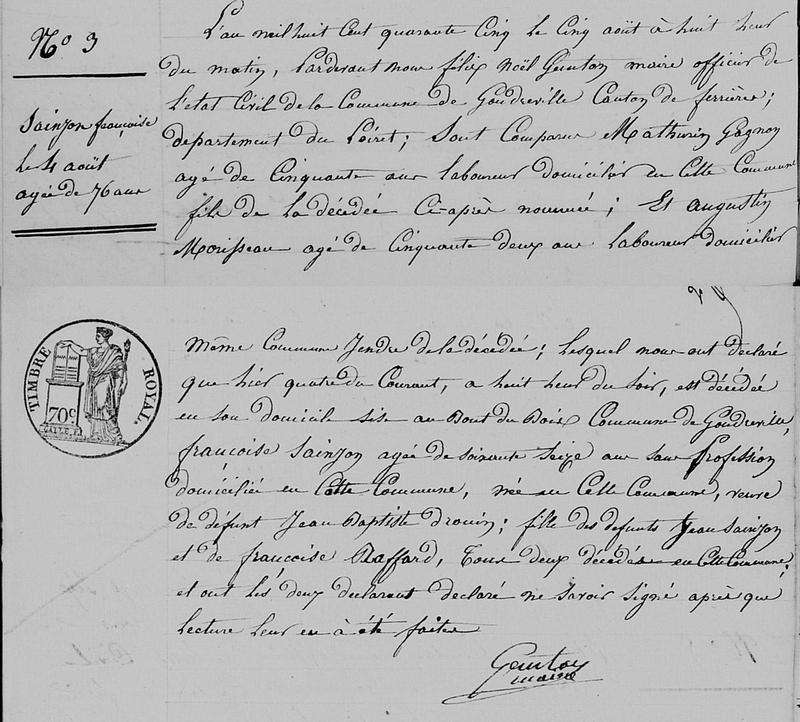 N.o 3
Sainson françoise
le 4 août
agée de 76 ans
L'an mil huit Cent quarante Cinq le Cinq août à huit heur
du matin, Pardevant nous félix Noël Genton maire officier de
l'etat Civil de la Commune de Gondreville Canton de ferrière;
departement du Loiret; Sont Comparus Mathurin Gagnon
agé de Cinquante ans laboureur domicilié en Cette Commune
fils de la décédée Ci-après nommée; Et augustin
Morisseau agé de Cinquante deux ans laboureur domicilié
TIMBRE ROYAL.
70c
Même Commune Jendre de la décédée; lesquel nous ont déclaré
que hier quatre du Courant, a huit heur du soir, est décédée
en son domicile sise au Bout du Bois Commune de Gondreville,
françoise Sainson agée de soixante Seize ans sans Profession
domiciliée en Cette Commune, née en Cette Commune, veuve
de défunt Jean Baptiste Drouin; fille des defunts Jean Sainson
et de françoise Raffard, Tous deux décédés en Cette Commune;
et ont les deux declarant déclaré ne savoir signé après que
lecture leur en à été faites
Genton
maire